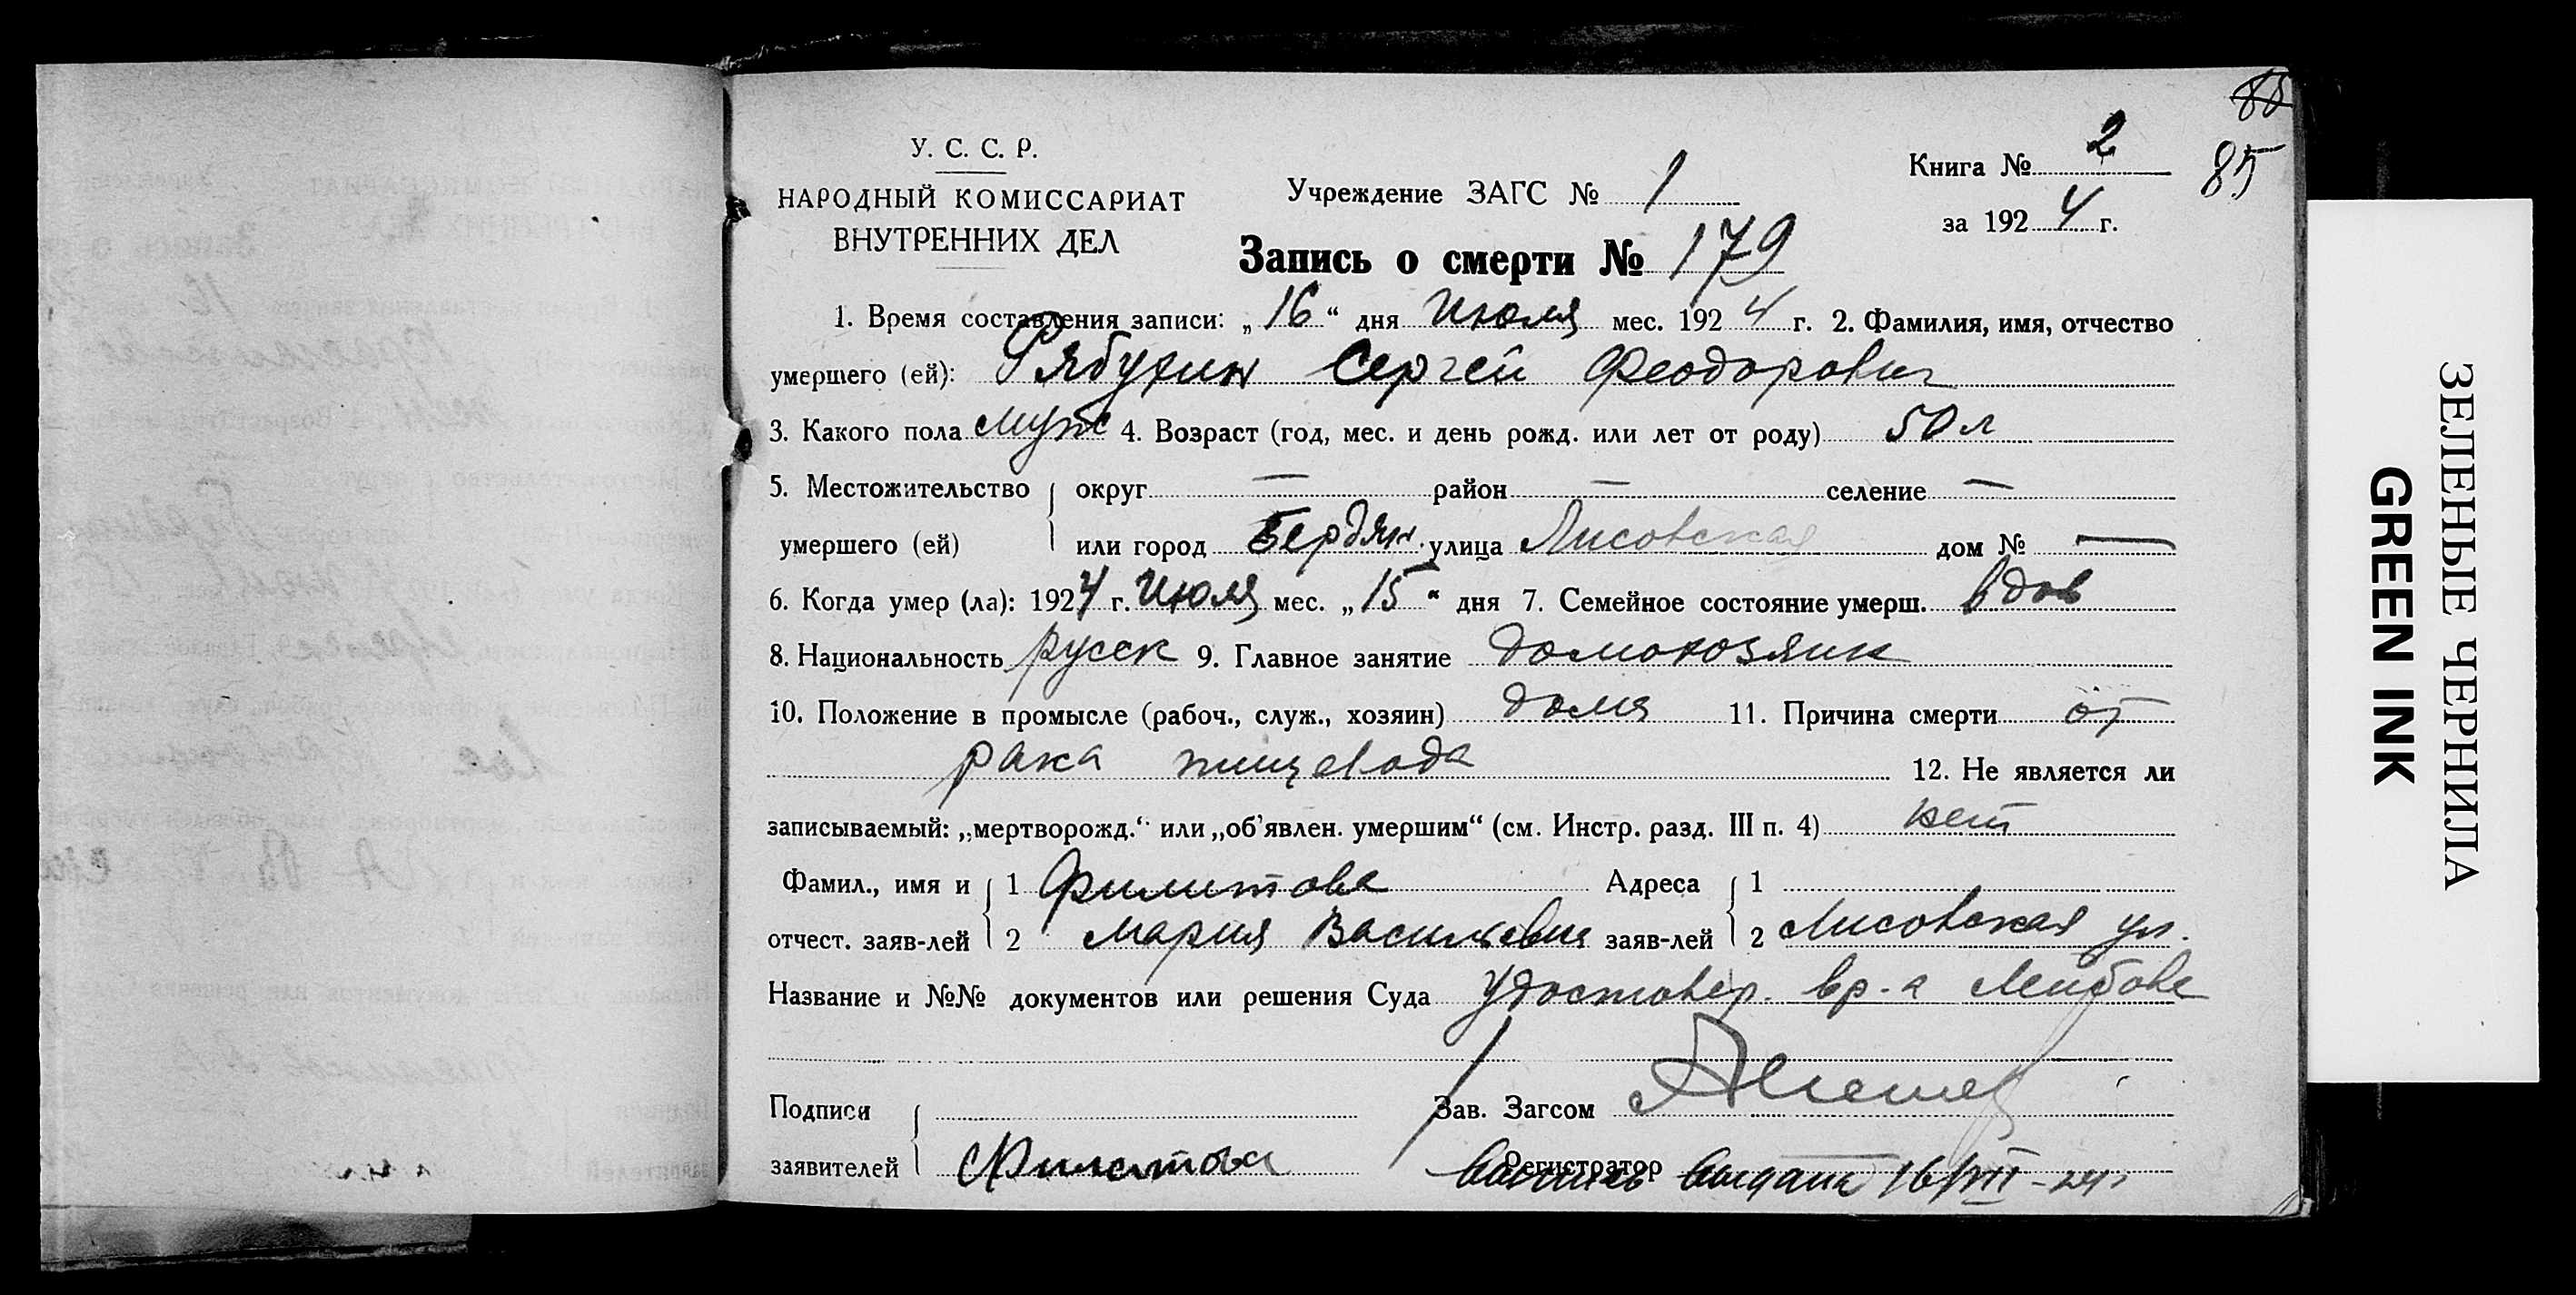 85
У. С. С. Р.
Книга № 2
85
НАРОДНЫЙ КОМИССАРИАТ
Учреждение ЗАГС № 1
за 1924 г.
ВНУТРЕННИХ ДЕЛ
Запись о смерти № 179
1. Время составления записи: „16“ дня Июля мес. 1924 г. 2. Фамилия, имя, отчество
умершего (ей): Рябухин Сергей Феодорович
3. Какого пола муж 4. Возраст (год, мес. и день рожд. или лет от роду) 50 л
5. Местожительство округ — район — селение —
умершего (ей) или город Бердян. улица Лисовская дом № —
6. Когда умер (ла): 1924 г. Июля мес. „15“ дня 7. Семейное состояние умерш. вдов
8. Национальность русск 9. Главное занятие домохозяин
10. Положение в промысле (рабоч., служ., хозяин) дома 11. Причина смерти от
рака пищевода 12. Не является ли
записываемый: „мертворожд.“ или „об’явлен. умершим“ (см. Инстр. разд. III п. 4) нет
Фамил., имя и 1 Филитова Адреса 1
отчест. заяв-лей 2 Мария Васильевна заяв-лей 2 Лисовская ул.
Название и №№ документов или решения Суда Удостовер. вр-а
Подписи Зав. Загсом
заявителей Филатова Регистратор
выпись выдана 16/VII-24г
ЗЕЛЕНЫЕ ЧЕРНИЛА
GREEN INK